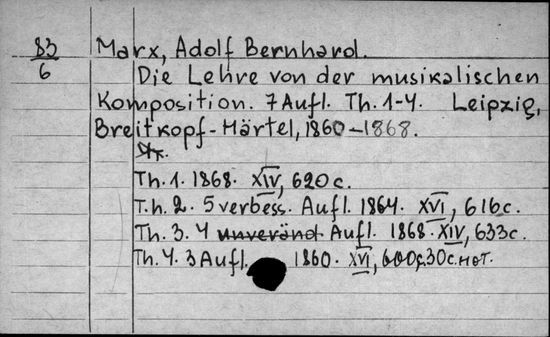 83 Marx, Adolf Bernhard.
6 Die Lehre von der musikalischen
Komposition. 7 Aufl. Th. 1-4. Leipzig,
Breitkopf-Härtel, 1860-1868.
Th. 1. 1868. XIV, 620 c.
T.h. 2. 5 verbess. Aufl. 1864. XVI, 616 c.
Th. 3. 4 unveränd Aufl. 1868. XIV, 633 c.
Th. 4. 3 Aufl. 1860. XVI, 600 c. 30 c. нот.